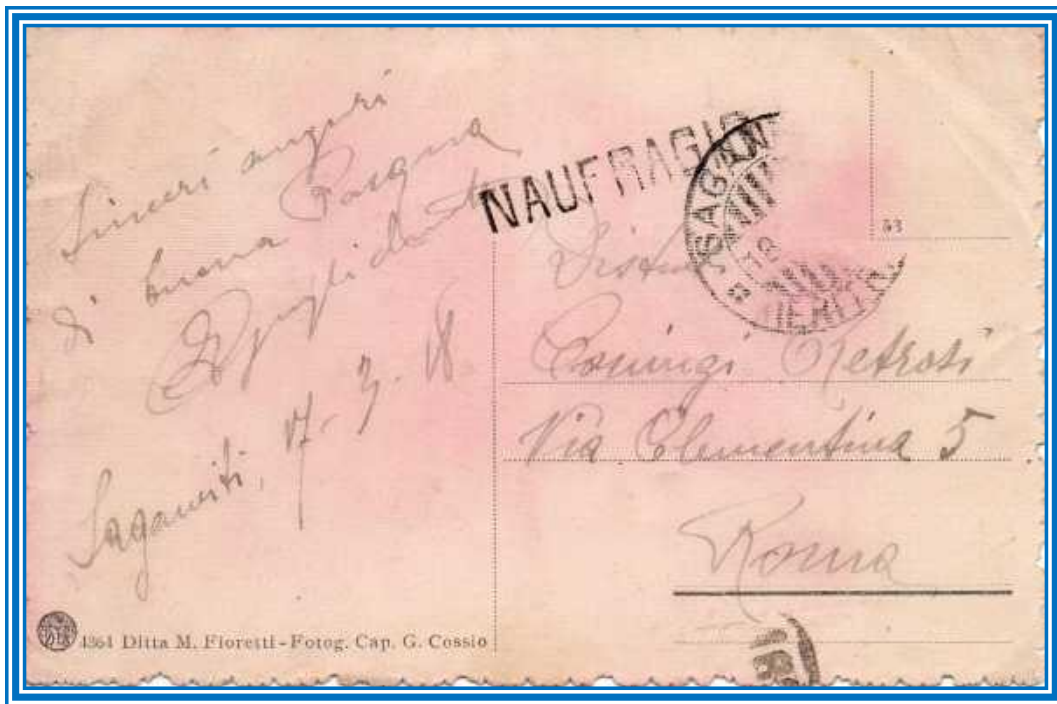 Sinceri auguri
di buona Pasqua
Saganeiti, 17-3-18
NAUFRAGIO
SAGAN
18
ERITR
53
Coniugi Petrosi
Via Clementina 5
Roma
4364 Ditta M. Fioretti - Fotog. Cap. G. Cossio